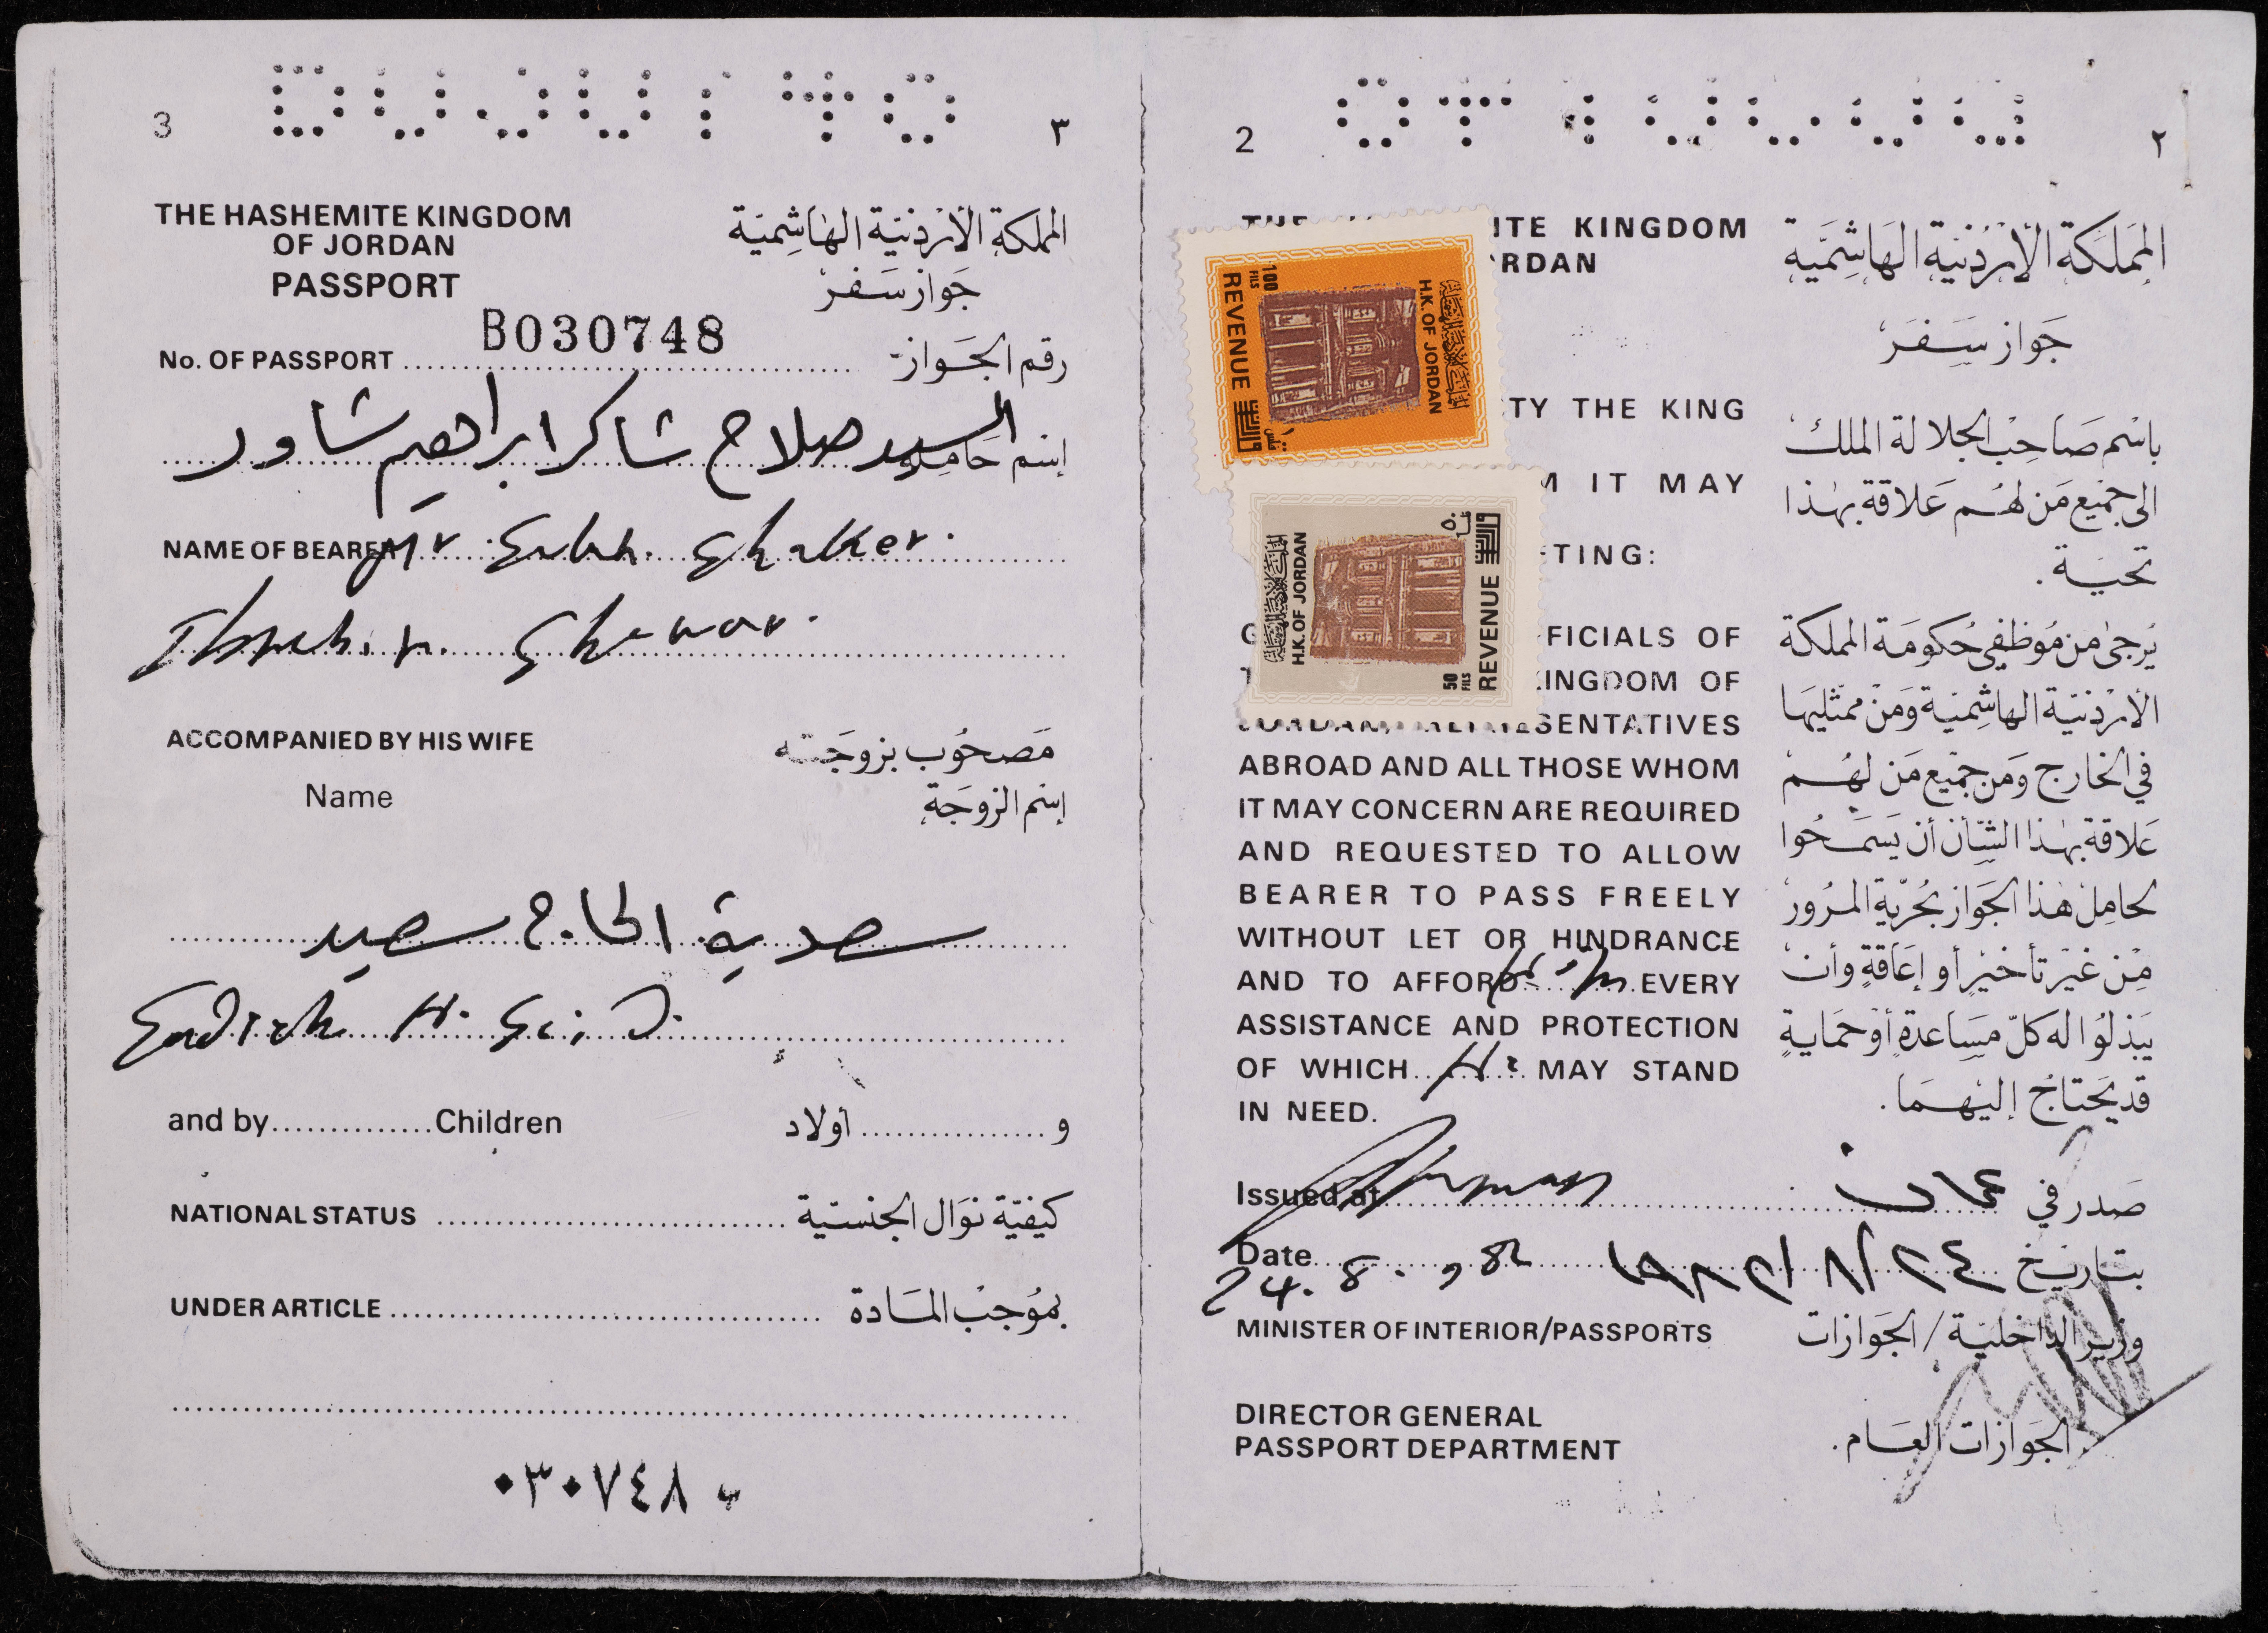 3
٣
THE HASHEMITE KINGDOM
OF JORDAN
PASSPORT
المملكة الأردنية الهاشمية
جواز سفر
No. OF PASSPORT B030748 رقم الجواز
إسم حامله السيد صلاح شاكر ابراهيم شاور
NAME OF BEARER Mr Salah Shaker
Ibrahim Shawar
ACCOMPANIED BY HIS WIFE مصحوب بزوجته
Name إسم الزوجة
سعدية الحاج سعيد
Sadieh H. Said
and by Children و أولاد
NATIONAL STATUS كيفية نوال الجنسية
UNDER ARTICLE بموجب المادة
٠٣٠٧٤٨
2
٢
ITE KINGDOM
RDAN
المملكة الأردنية الهاشمية
جواز سفر
100 FILS
REVENUE
H.K. OF JORDAN
TY THE KING
باسم صاحب الجلالة الملك
M IT MAY
الى جميع من لهم علاقة بهذا
TING:
تحية .
50 FILS
REVENUE
H.K. OF JORDAN
FICIALS OF
INGDOM OF
SENTATIVES
ABROAD AND ALL THOSE WHOM
IT MAY CONCERN ARE REQUIRED
AND REQUESTED TO ALLOW
BEARER TO PASS FREELY
WITHOUT LET OR HINDRANCE
AND TO AFFORD him EVERY
ASSISTANCE AND PROTECTION
OF WHICH He MAY STAND
IN NEED.
يرجى من موظفي حكومة المملكة
الأردنية الهاشمية ومن ممثليها
في الخارج ومن جميع من لهم
علاقة بهذا الشأن أن يسمحوا
لحامل هذا الجواز بحرية المرور
من غير تأخير أو إعاقة وأن
يبذلوا له كل مساعدة أو حماية
قد يحتاج إليهما .
Issued at Amman
صدر في عمان
Date 24.8.982
بتاريخ ٢٤/٨/١٩٨٢
MINISTER OF INTERIOR/PASSPORTS
وزير الداخلية / الجوازات
DIRECTOR GENERAL
PASSPORT DEPARTMENT
الجوازات العام .